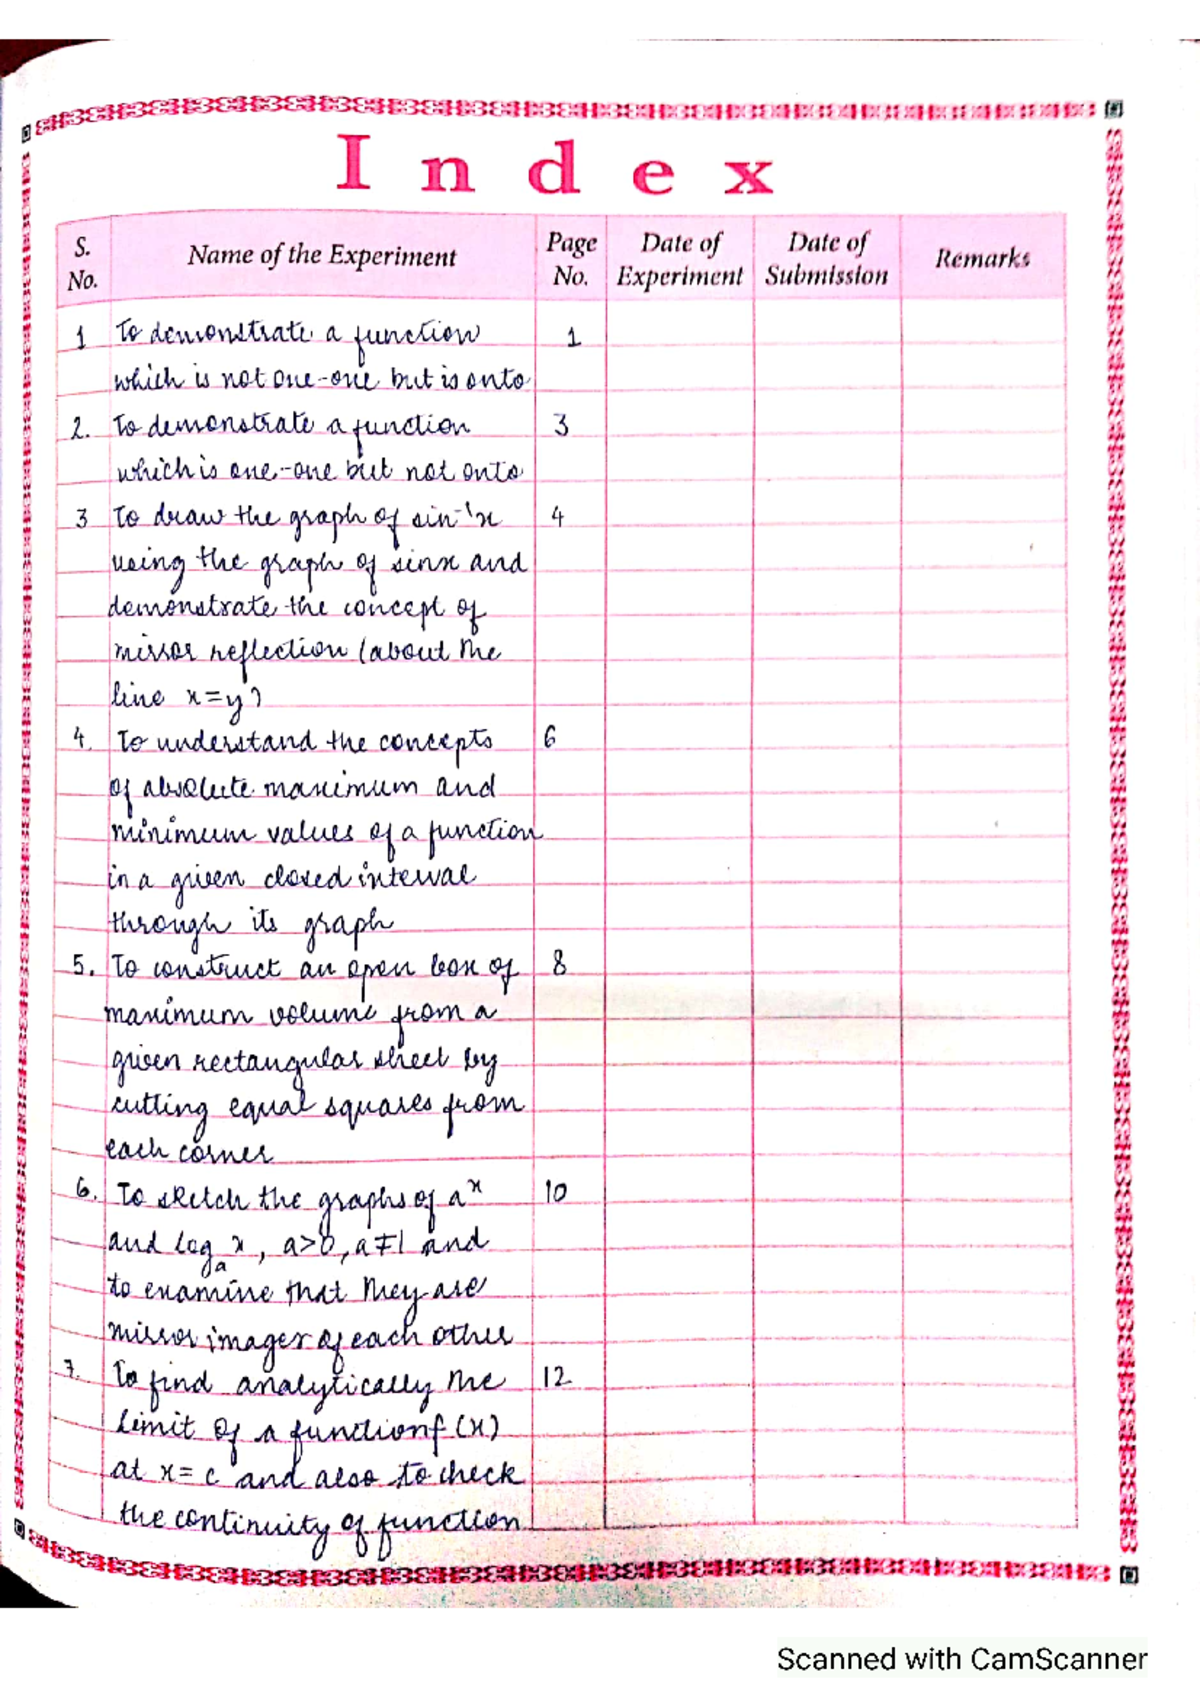 Index
S. No. Name of the Experiment Page No. Date of Experiment Date of Submission Remarks
1 To demonstrate a function 1
which is not one-one but is onto
2. To demonstrate a function 3
which is one-one but not onto
3 To draw the graph of sin⁻¹x 4
using the graph of sinx and
demonstrate the concept of
mirror reflection (about the
line x=y)
4. To understand the concepts 6
of absolute maximum and
minimum values of a function
in a given closed interval
through its graph
5. To construct an open box of 8
maximum volume from a
given rectangular sheet by
cutting equal squares from
each corner
6. To sketch the graphs of aˣ 10
and logₐ x, a>0, a≠1 and
to examine that they are
mirror images of each other
7. To find analytically the 12
limit of a function f(x)
at x=c and also to check
the continuity of function
Scanned with CamScanner